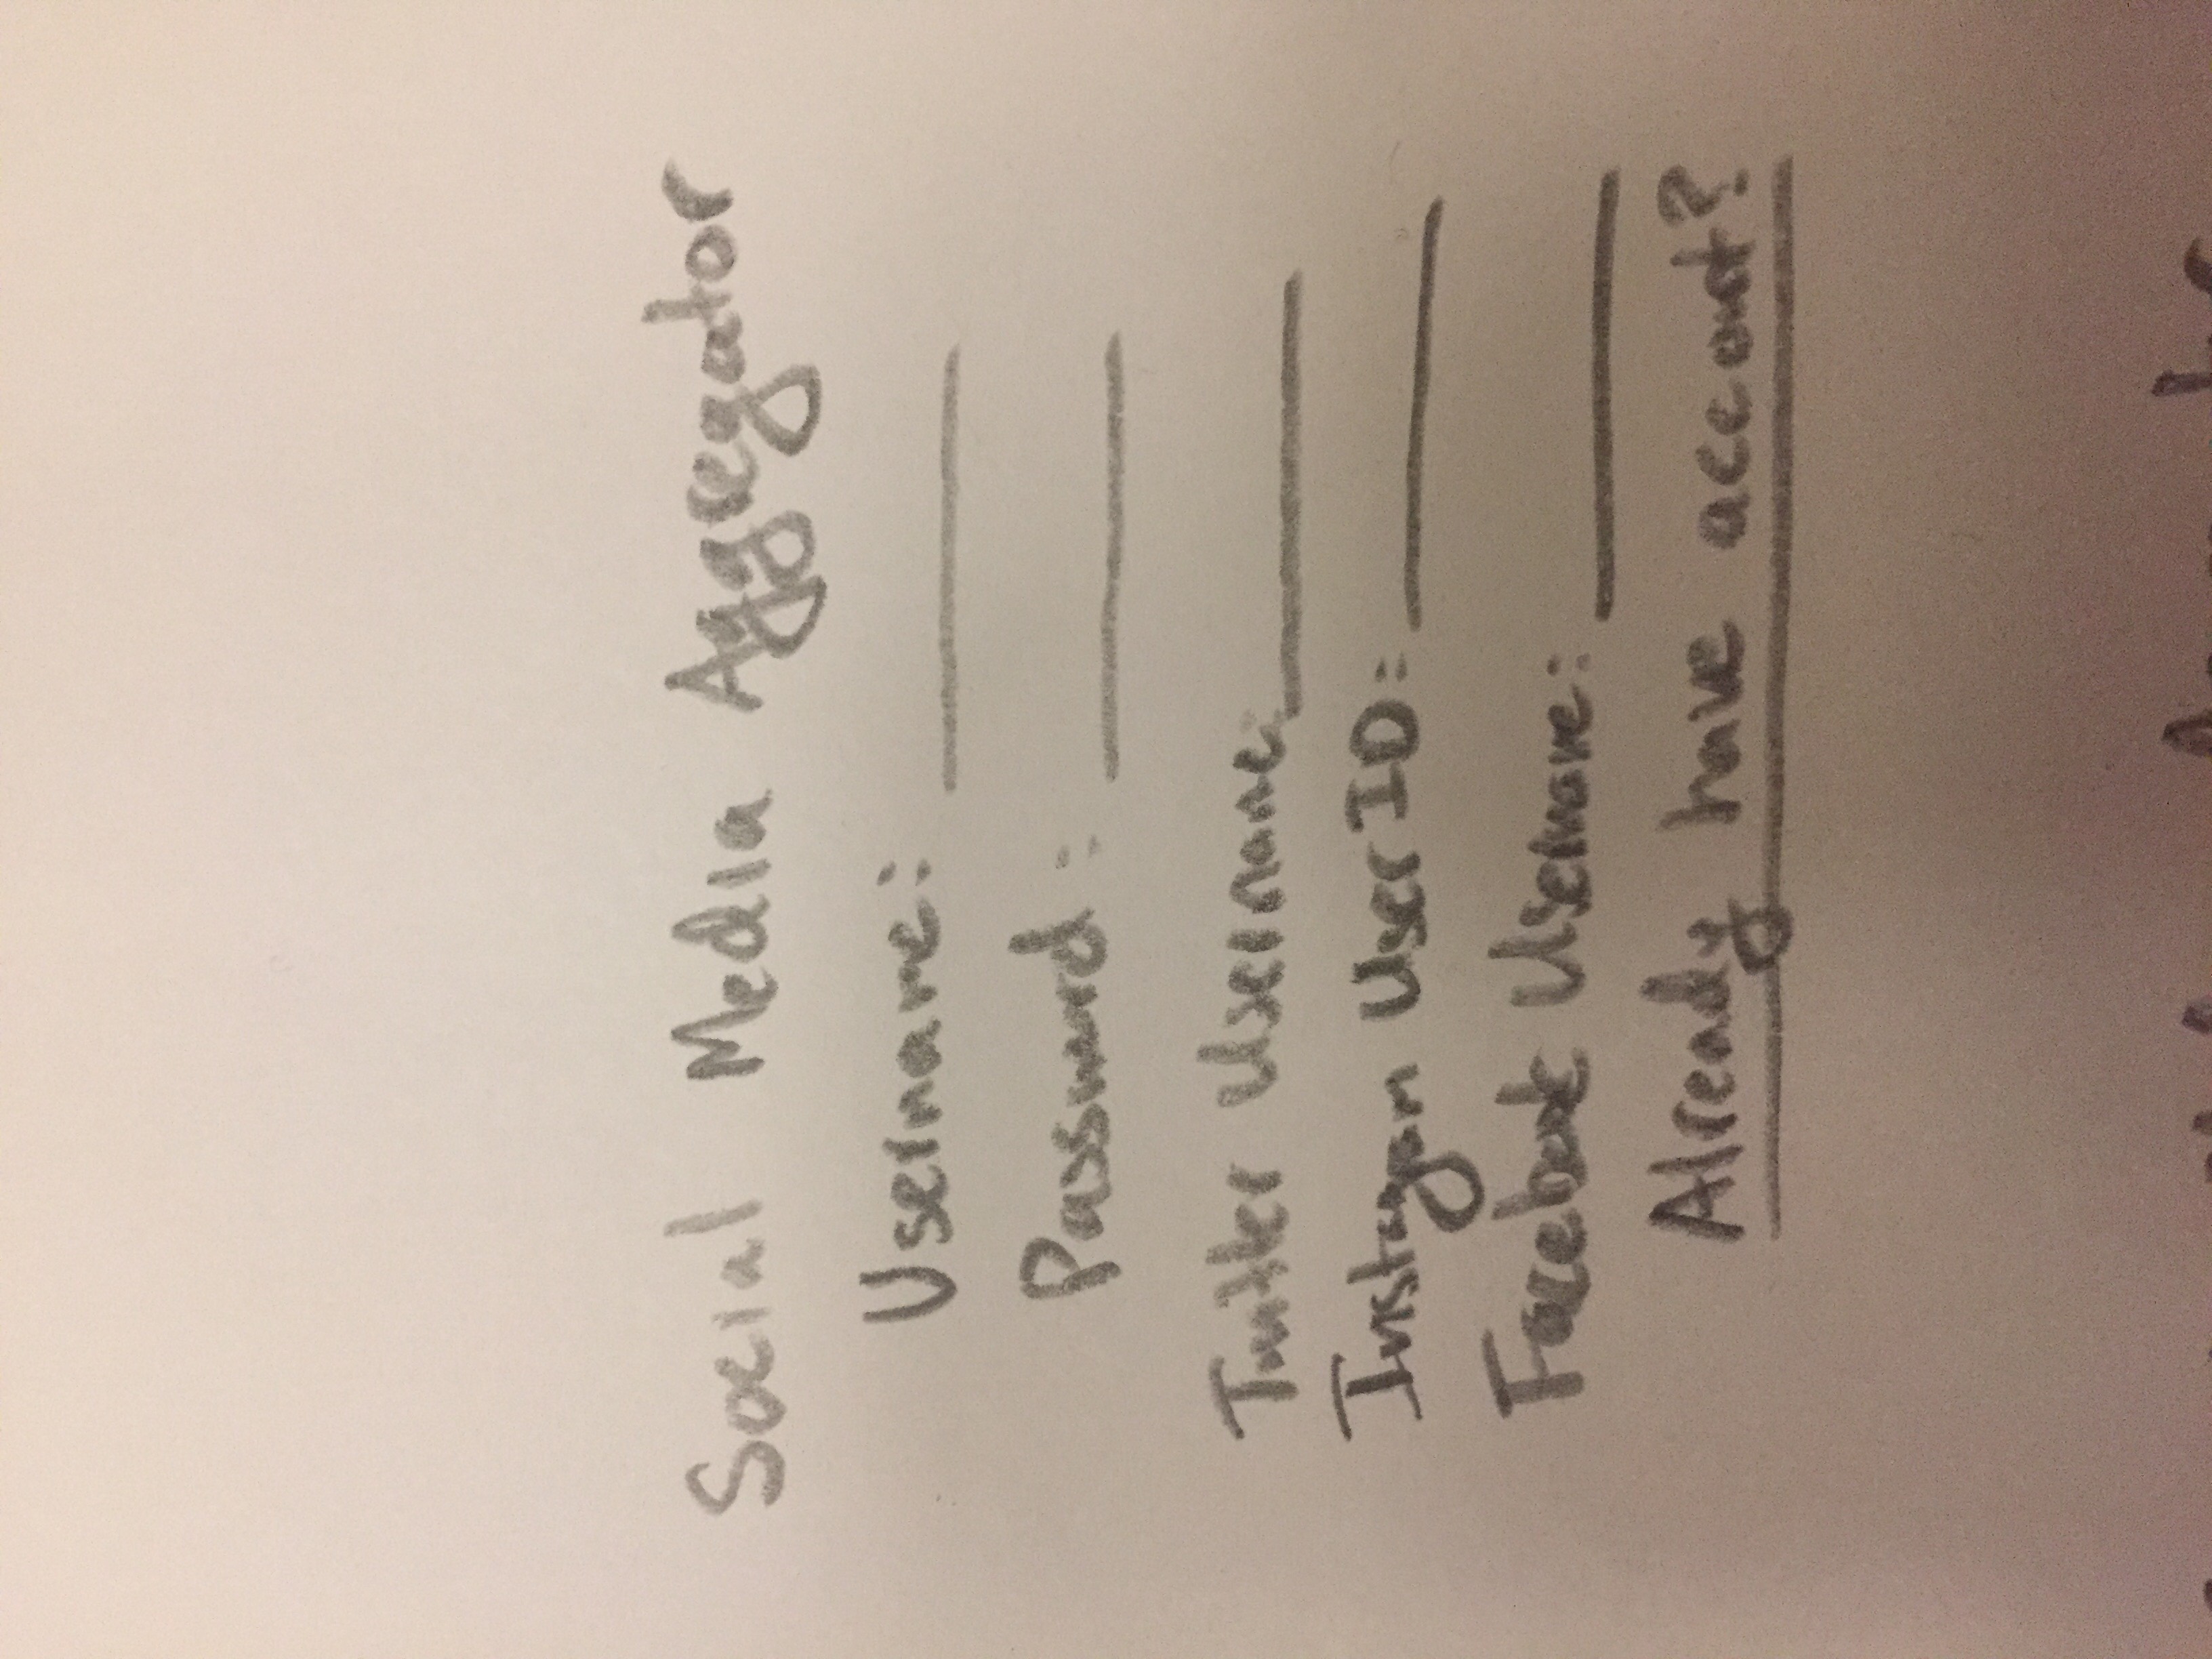 Social Media Aggregator
Username: ____
Password: ____
Twitter Username: ____
Instagram User ID: ____
Facebook Username: ____
Already have account?